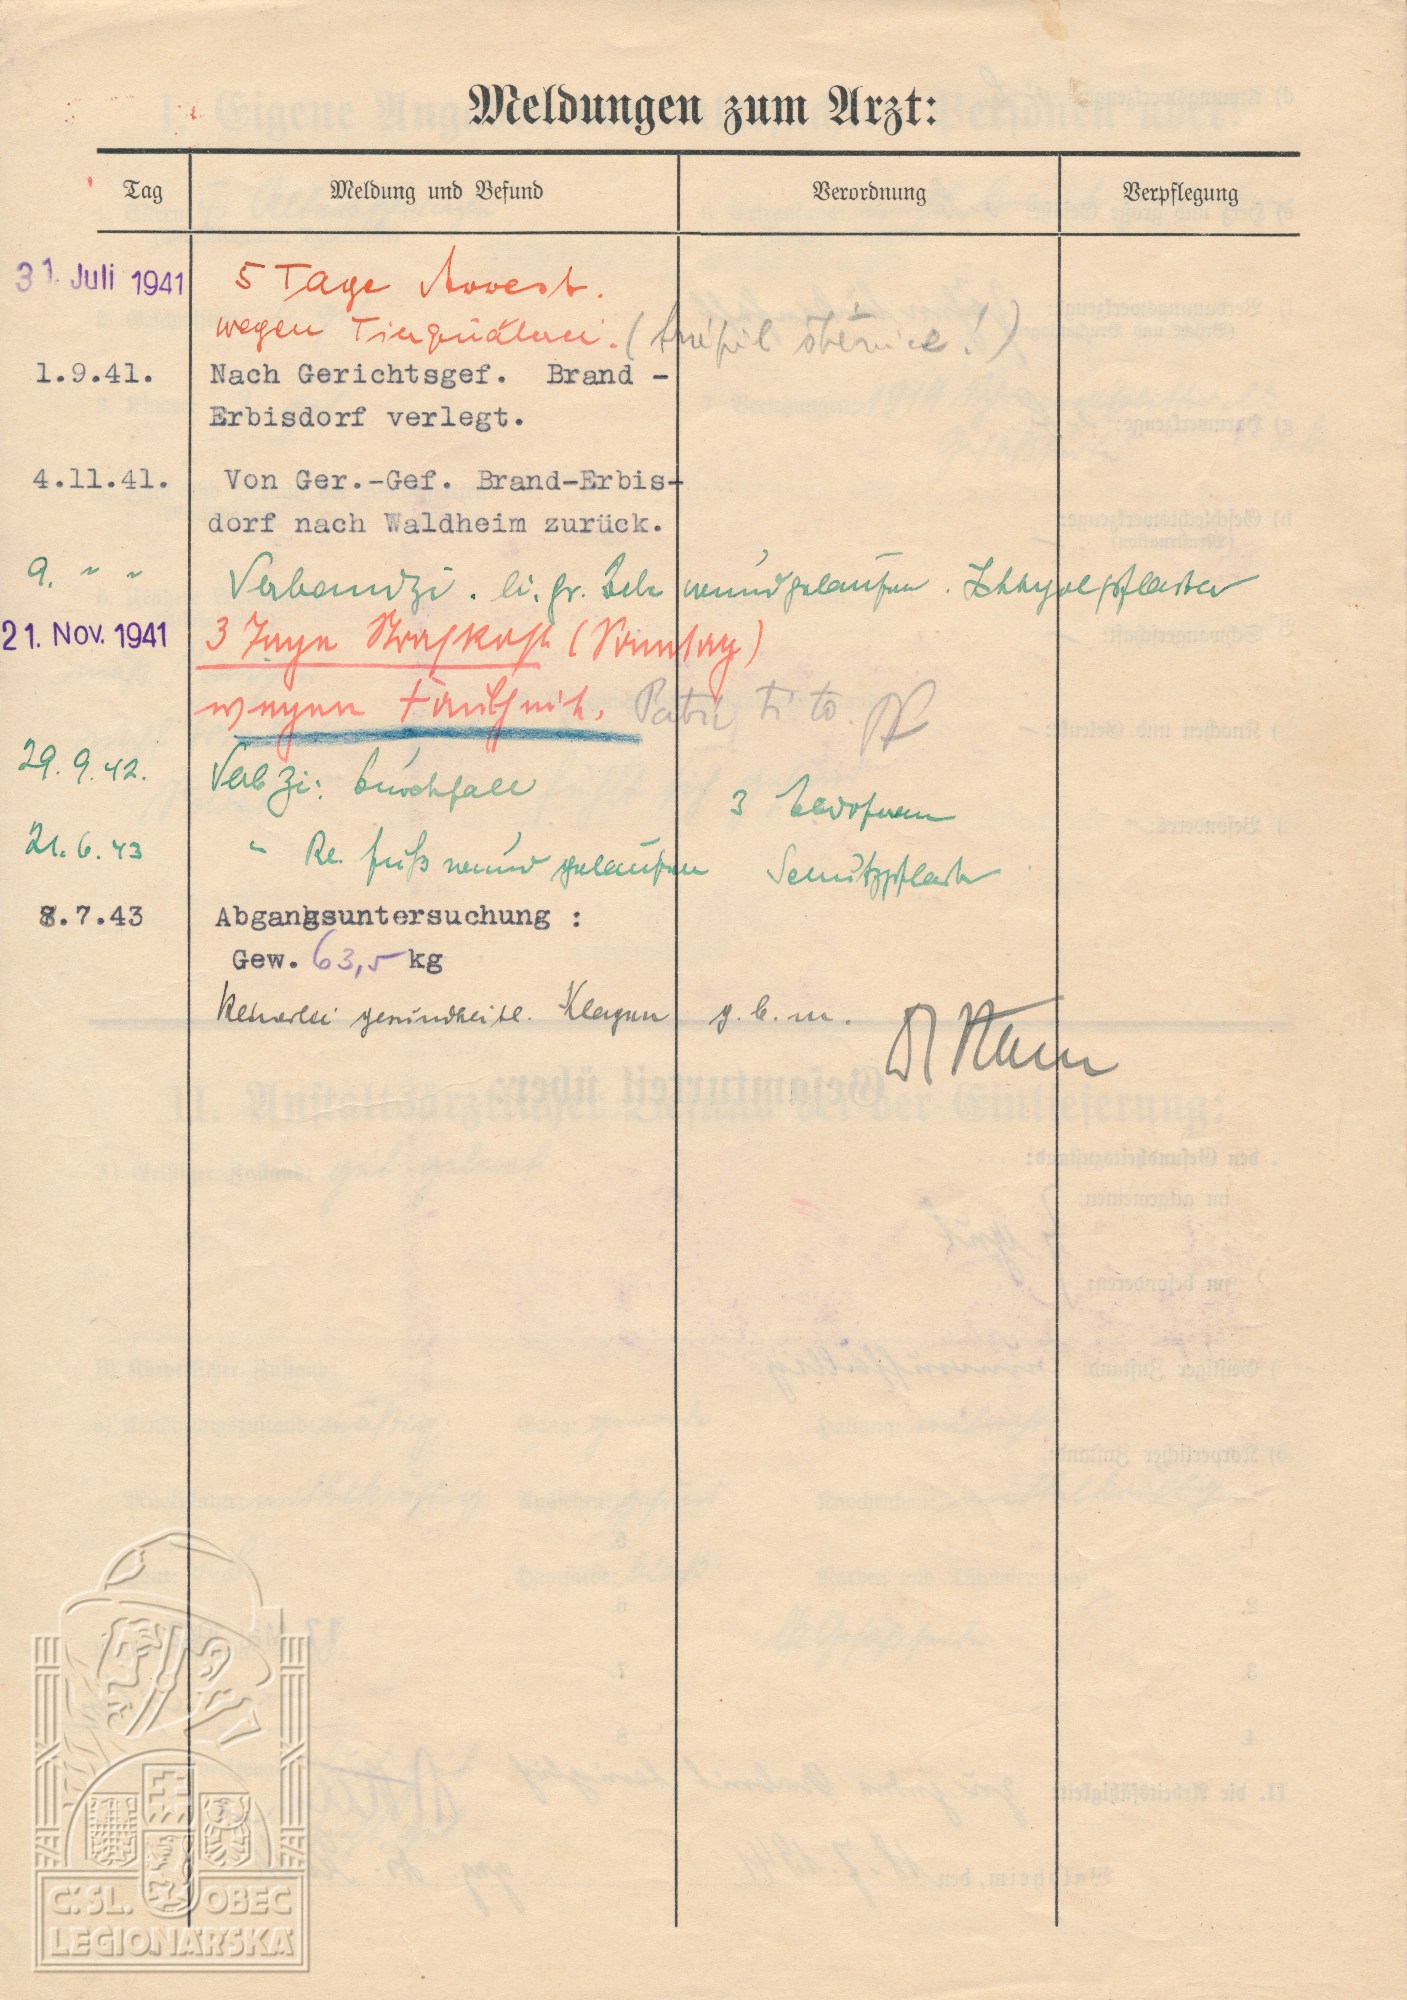 Meldungen zum Arzt:
Tag Meldung und Befund Verordnung Verpflegung
31. Juli 1941 5 Tage Arrest.
wegen Tierquälerei. (
1.9.41. Nach Gerichtsgef. Brand -
Erbisdorf verlegt.
4.11.41. Von Ger.-Gef. Brand-Erbis-
dorf nach Waldheim zurück.
9. " " Verbandzi. li. gr. Zeh wundgelaufen. Ichtyolpflaster
21. Nov. 1941 3 Tage Strafkost (Sonntag)
wegen Faulheit. Patří ti to.
29.9.42. Verbzi: Durchfall 3
21.6.43 " Re. Fuß wund gelaufen Schutzpflaster
8.7.43 Abgangsuntersuchung :
Gew. 63,5 kg
Keinerlei gesundheitl. Klagen g.b.m.
Č.SL. OBEC
LEGIONÁŘSKÁ